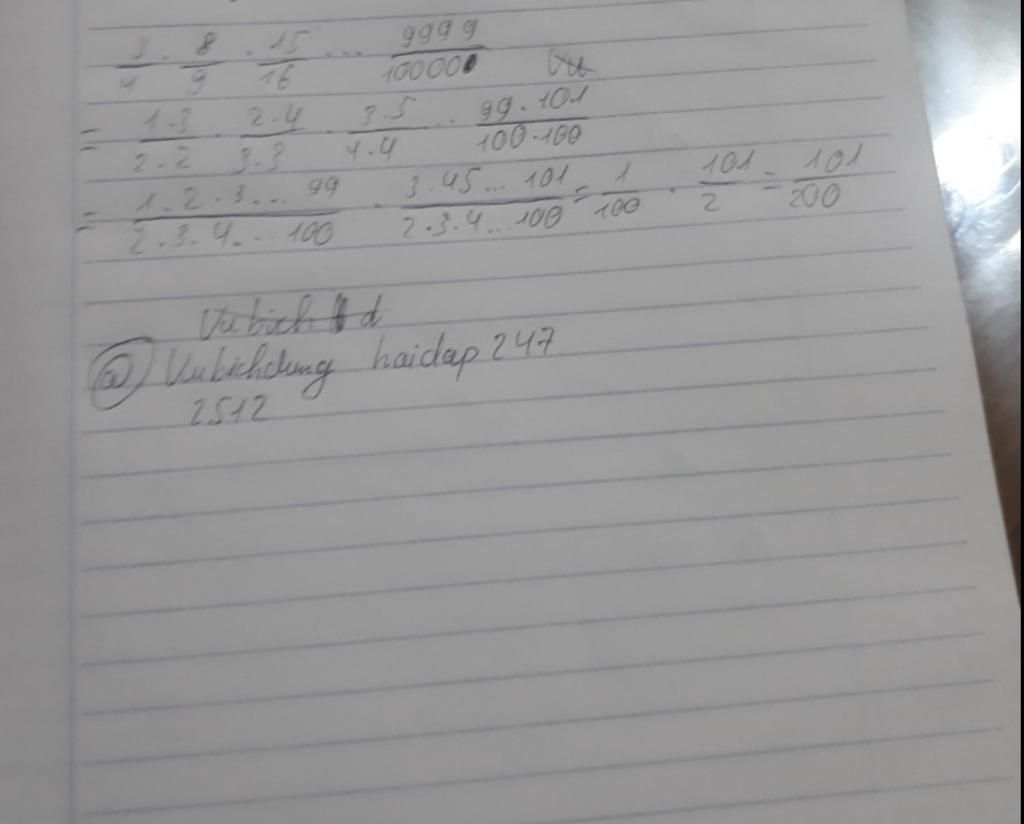 3/4 . 8/9 . 15/16 ... 9999/10000 Vu
= 1.3/2.2 . 2.4/3.3 . 3.5/4.4 ... 99.101/100.100
= 1.2.3...99/2.3.4...100 . 3.45...101/2.3.4...100 = 1/100 . 101/2 = 101/200
Vubich d
@ Vubichdung hoidap247
2512